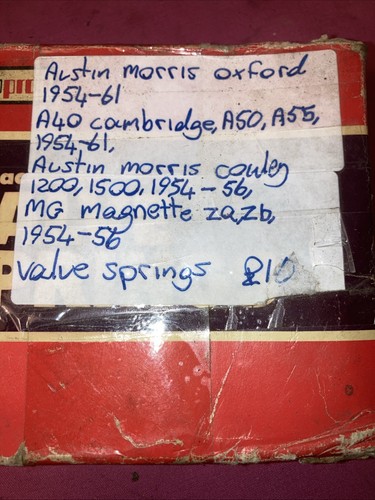 Austin morris oxford
1954-61
A40 cambridge, A50, A55,
1954-61,
Austin morris cowley
1200, 1500, 1954-56,
MG magnette za,zb,
1954-56
valve springs £10